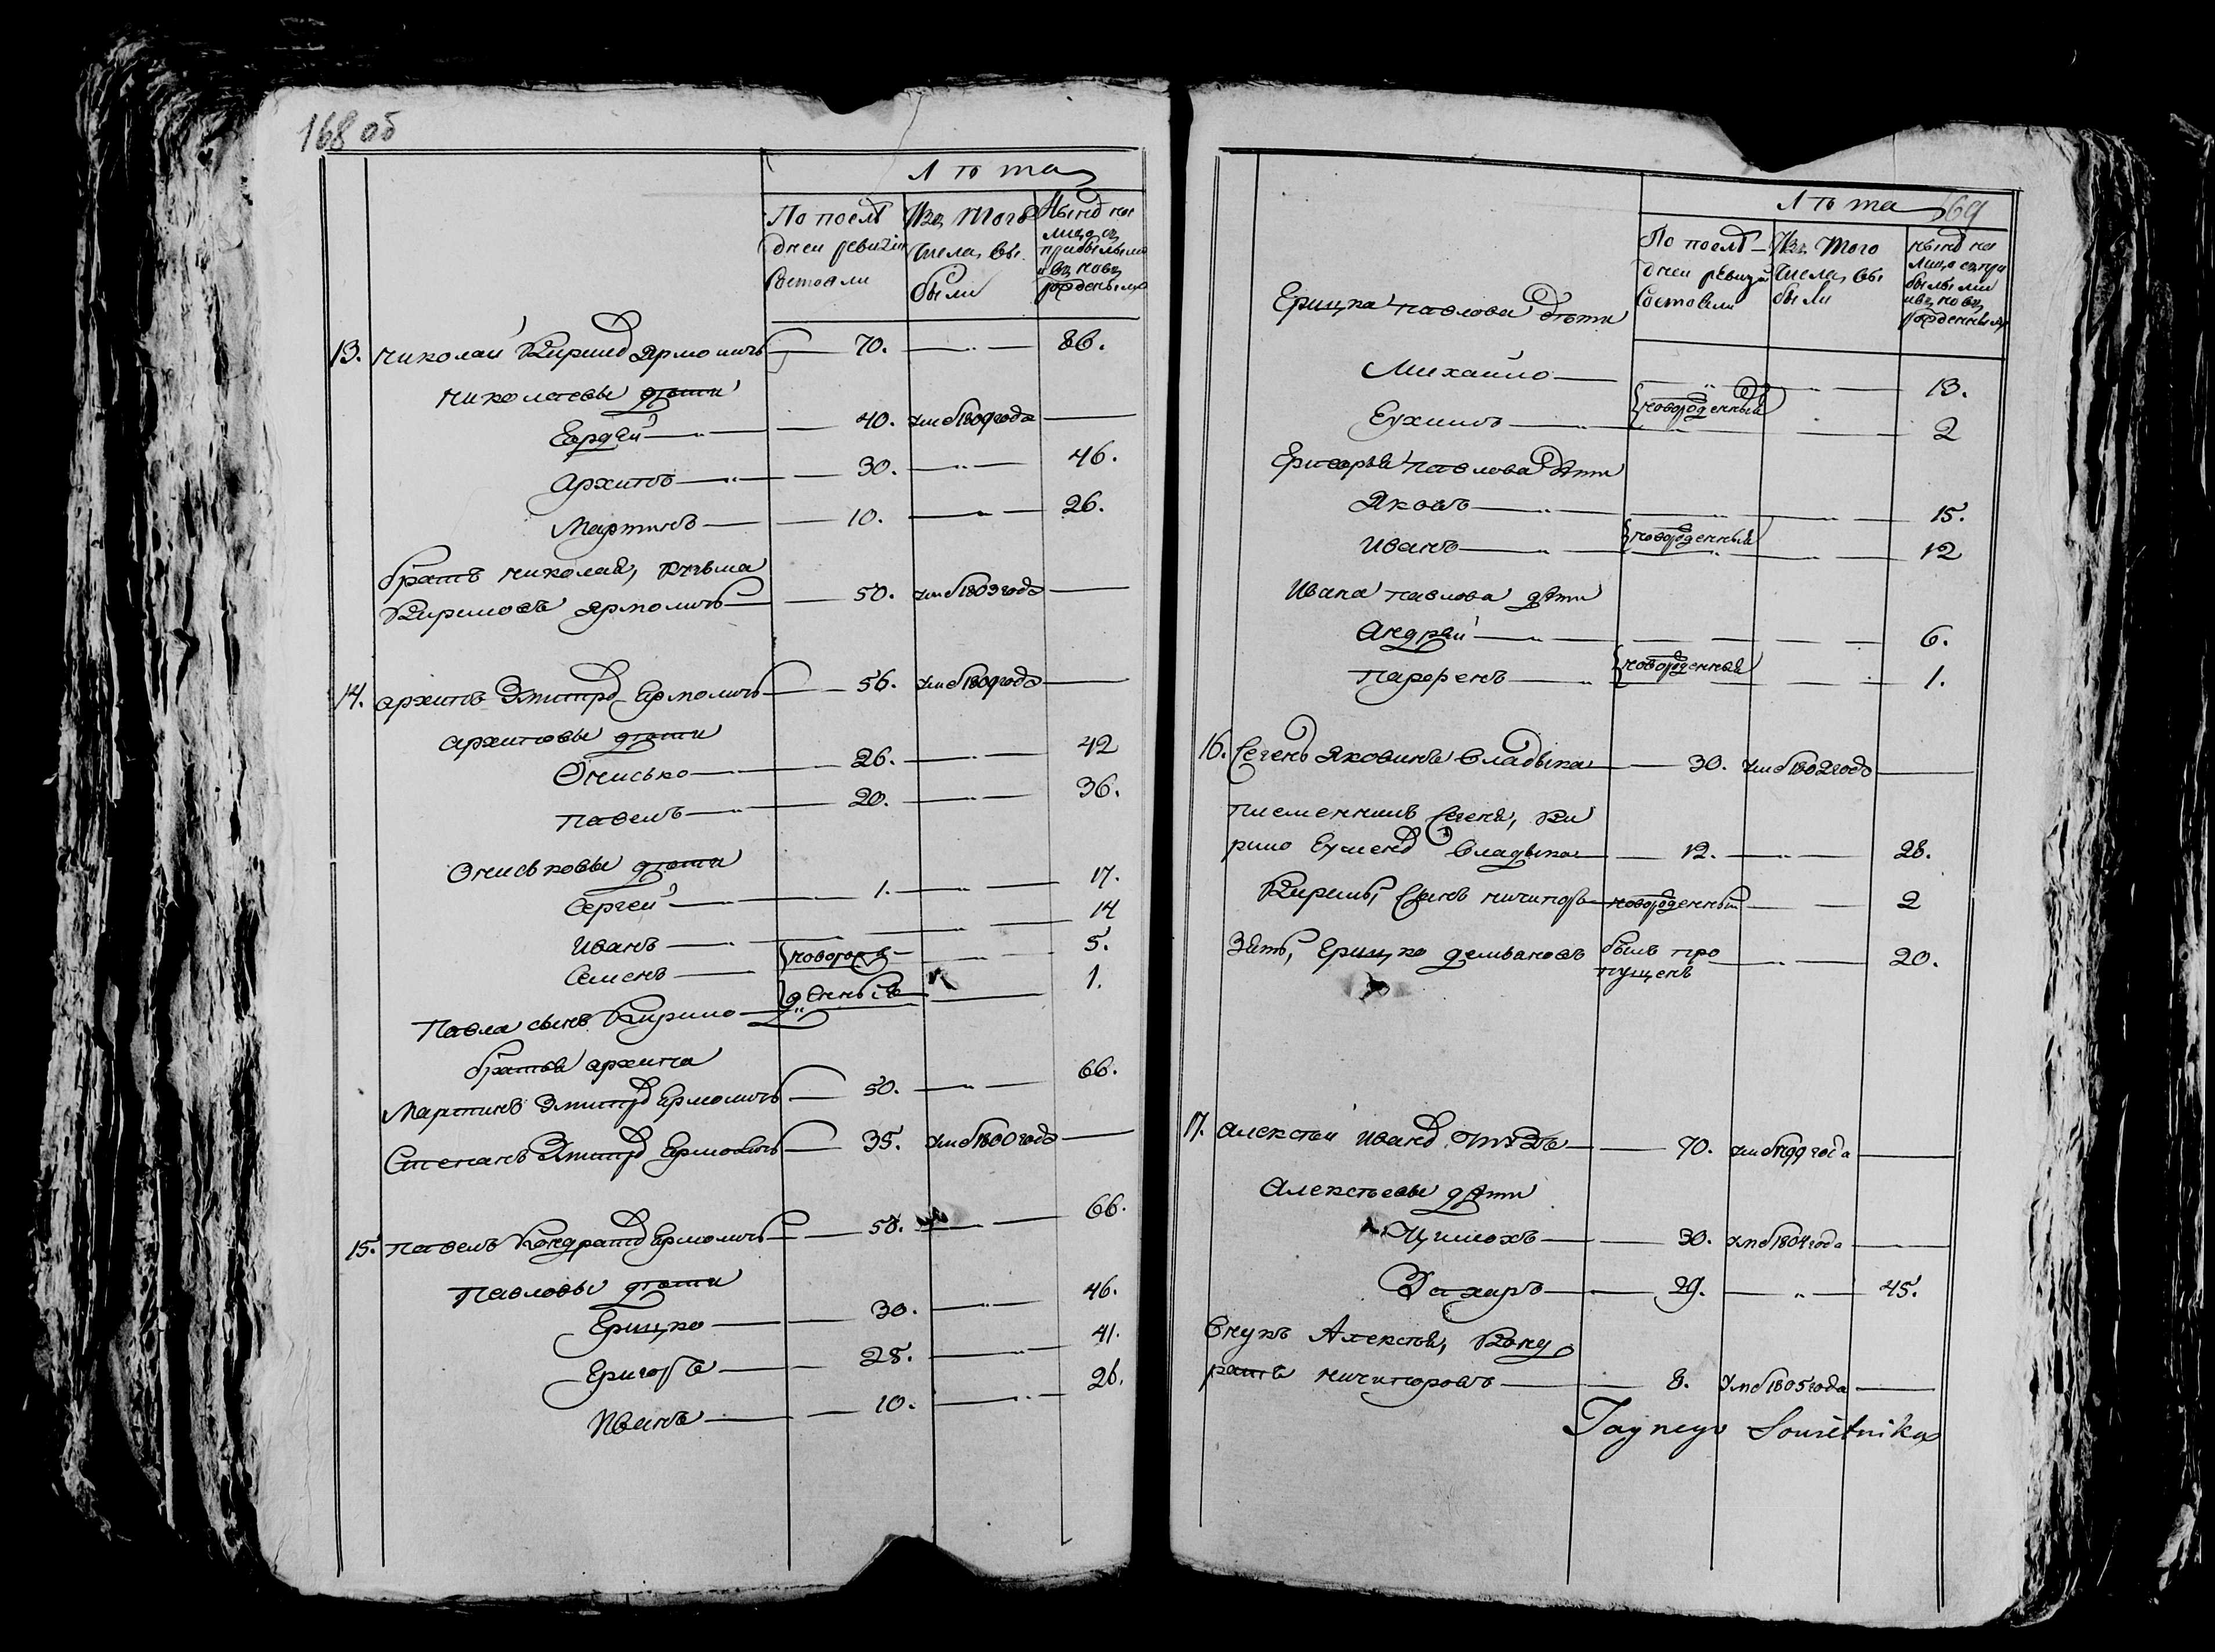 168 об
Лѣта
По послѣ
дней ревизіи
состояли
Изъ того
числа вы
были
Нынѣ на
лицо съ
прибылыми
и въ новъ
рожденными
13. николай Кирилѣ Ярмоличъ 70. —„— 86.
николаевы дѣти
Гордѣй —„— 40. умеб 1809 года —
Архипъ —„— 30. —„— 46.
Мартинъ — 10. —„— 26.
братъ николая, Кузьма
Кириловъ Ярмоличъ — 50. умеб 1803 года —
14. архипъ Дмитрѣ Ермоличъ — 56. умеб 1809 года —
архиповы дѣти
Онисько — 26. —„— 42
павелъ —„— 20. —„— 36.
Ониськовы дѣти
Сергей —„— 1. —„— 17.
Иванъ —„— 14
Семенъ — новорож —„— 5.
денныѣ
Павла сынъ Кирило — 1.
братья архипа
Мартинъ Дмитрѣ Ермоличъ — 50. —„— 66.
Степанъ Дмитрѣ Ермоличъ — 35. умеб 1800 года —
15. павелъ Кондратѣ Ермоличъ — 50. —„— 66.
Павловы дѣти
Грицко — 30. —„— 46.
Григорѣ — 25. —„— 41.
Иванъ — 10. —„— 26.
169
Лѣта
По послѣ
дней ревизіи
состояли
Изъ того
числа вы
были
нынѣ на
лицо съ при
былыми
и въ новъ
рожденными
Грицка павлова дѣти
Михайло — —„— 13.
новорожденный
Еухимъ — 2
Григорья павлова дѣти
Яковъ —„— 15.
новорожденный
Иванъ —„— 12
Ивана павлова дѣти
Андрей —„— 6.
новорожденный
парфенъ —„— 1.
16. Евгенъ Яковинъ Владыка — 30. умеб 1802 года —
племенникъ Евгенія, Ки
рило Еугенѣ Владыка — 12. —„— 28.
Кирилы, сынъ ничипоръ — новорожденный — 2
Зять, Грицко демьановъ былъ про —„— 20.
пущенъ
17. Алексѣй Иванѣ — 70. умеб 1799 года —
Алексѣевы дѣти
Цимохъ — 30. умеб 1804 года —
Захаръ — 29. —„— 45.
Внукъ Алексѣя, Конд
ратъ ничипоровъ — 8. умеб 1805 года —
Taynego Sowietnika